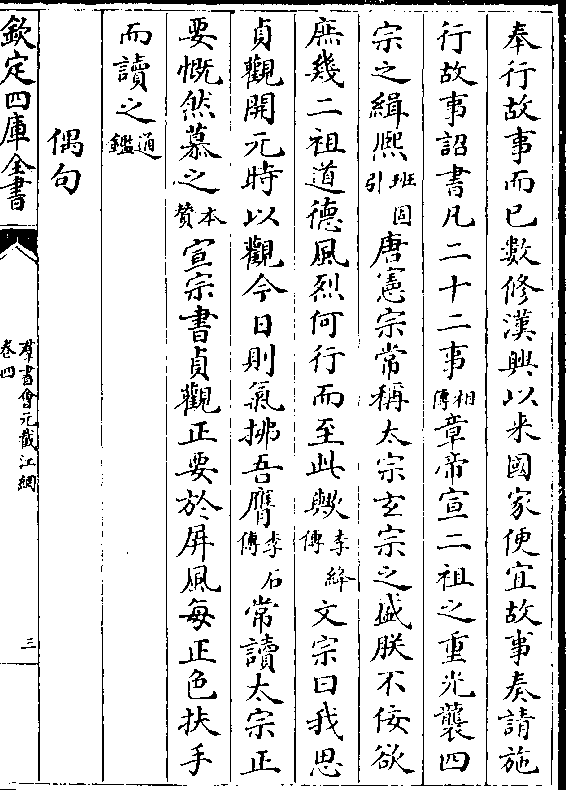 奉行故事而已數修漢興以來國家便宜故事奏請施
行故事詔書凡二十二事相傳章帝宣二祖之重光襲四
宗之緝熈班固引唐憲宗常稱太宗玄宗之盛朕不佞欲
庶幾二祖道德風烈何行而至此歟李絳傳文宗曰我思
貞觀開元時以觀今日則氣拂吾膺李石傳常讀太宗正
要慨然慕之本贊宣宗書貞觀正要於屏風每正色扶手
而讀之通鑑
偶句
欽定四庫全書
羣書會元截江網
卷四
三